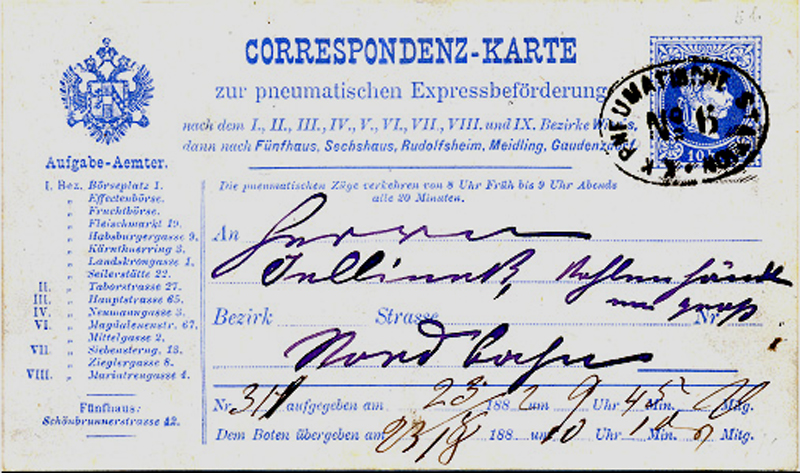 CORRESPONDENZ-KARTE
zur pneumatischen Expressbeförderung
nach dem I., II., III., IV., V., VI., VII., VIII. und IX. Bezirke
dann nach Fünfhaus, Sechshaus, Rudolfsheim, Meidling, Gaudenzdorf
K. K. PNEUMATISCHE STATION
No 6
10
Aufgabe-Aemter.
I. Bez. Börseplatz 1.
„ Effectenbörse.
„ Fruchtbörse.
„ Fleischmarkt 19.
„ Habsburgergasse 9.
„ Kärnthnerring 3.
„ Landskrongasse 1.
„ Seilerstätte 22.
II. Taborstrasse 27.
III. Hauptstrasse 65.
IV. Neumanngasse 3.
VI. Magdalenenstr. 67.
„ Mittelgasse 2.
VII. Siebensterng. 13.
„ Zieglergasse 8.
VIII. Mariatreugasse 4.
Fünfhaus:
Schönbrunnerstrasse 42.
Die pneumatischen Züge verkehren von 8 Uhr Früh bis 9 Uhr Abends
alle 20 Minuten.
An Herrn
Jellinek, Kohlenhändler
en gros
Bezirk Strasse Nr.
Nordbahn
Nr. aufgegeben am 23/8 188 2 um 9 Uhr 45 Min. Mitg.
Dem Boten übergeben am 23/8 188 um 10 Uhr Min. Mitg.